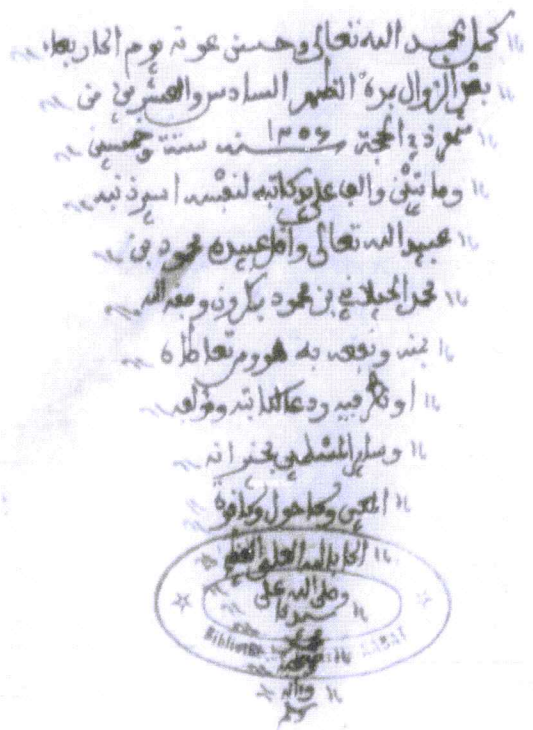 كمل بحمد الله تعالى وحسن عونه يوم الاربعاء
بعد الزوال مدة الظهر السادس والعشرين من
شهر ذي الحجة 1256 سنة ستة وخمسين
ومايتين والف على يد كاتبه لنفسه اسير ذنبه
عبيد الله تعالى واقل عبيده محمود بن
محمد الجيلاني بن محمود بكرون وفقه الله
بمنه ونفعه به هو ومن تعاطاه
او نظر فيه ودعا لكاتبه ومؤلفه
وساير المسلمين
المعين ولا حول ولا قوة
الا بالله العلي العظيم
وصلى الله على
سيدنا
محمد
وآله